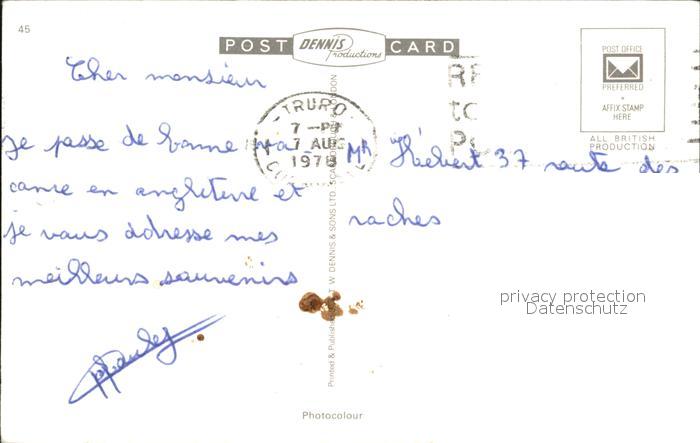 45
POST DENNIS Productions CARD
POST OFFICE
PREFERRED
AFFIX STAMP
HERE
ALL BRITISH
PRODUCTION
Cher monsieur
TRURO
7 - PM
7 AUG
1978
je passe de bonne va
canse en angleterre et
je vous adresse mes
meilleurs souvenirs
MR Hébert 37 route des
raches
Printed & Published T W. DENNIS & SONS LTD. LONDON
privacy protection
Datenschutz
Photocolour